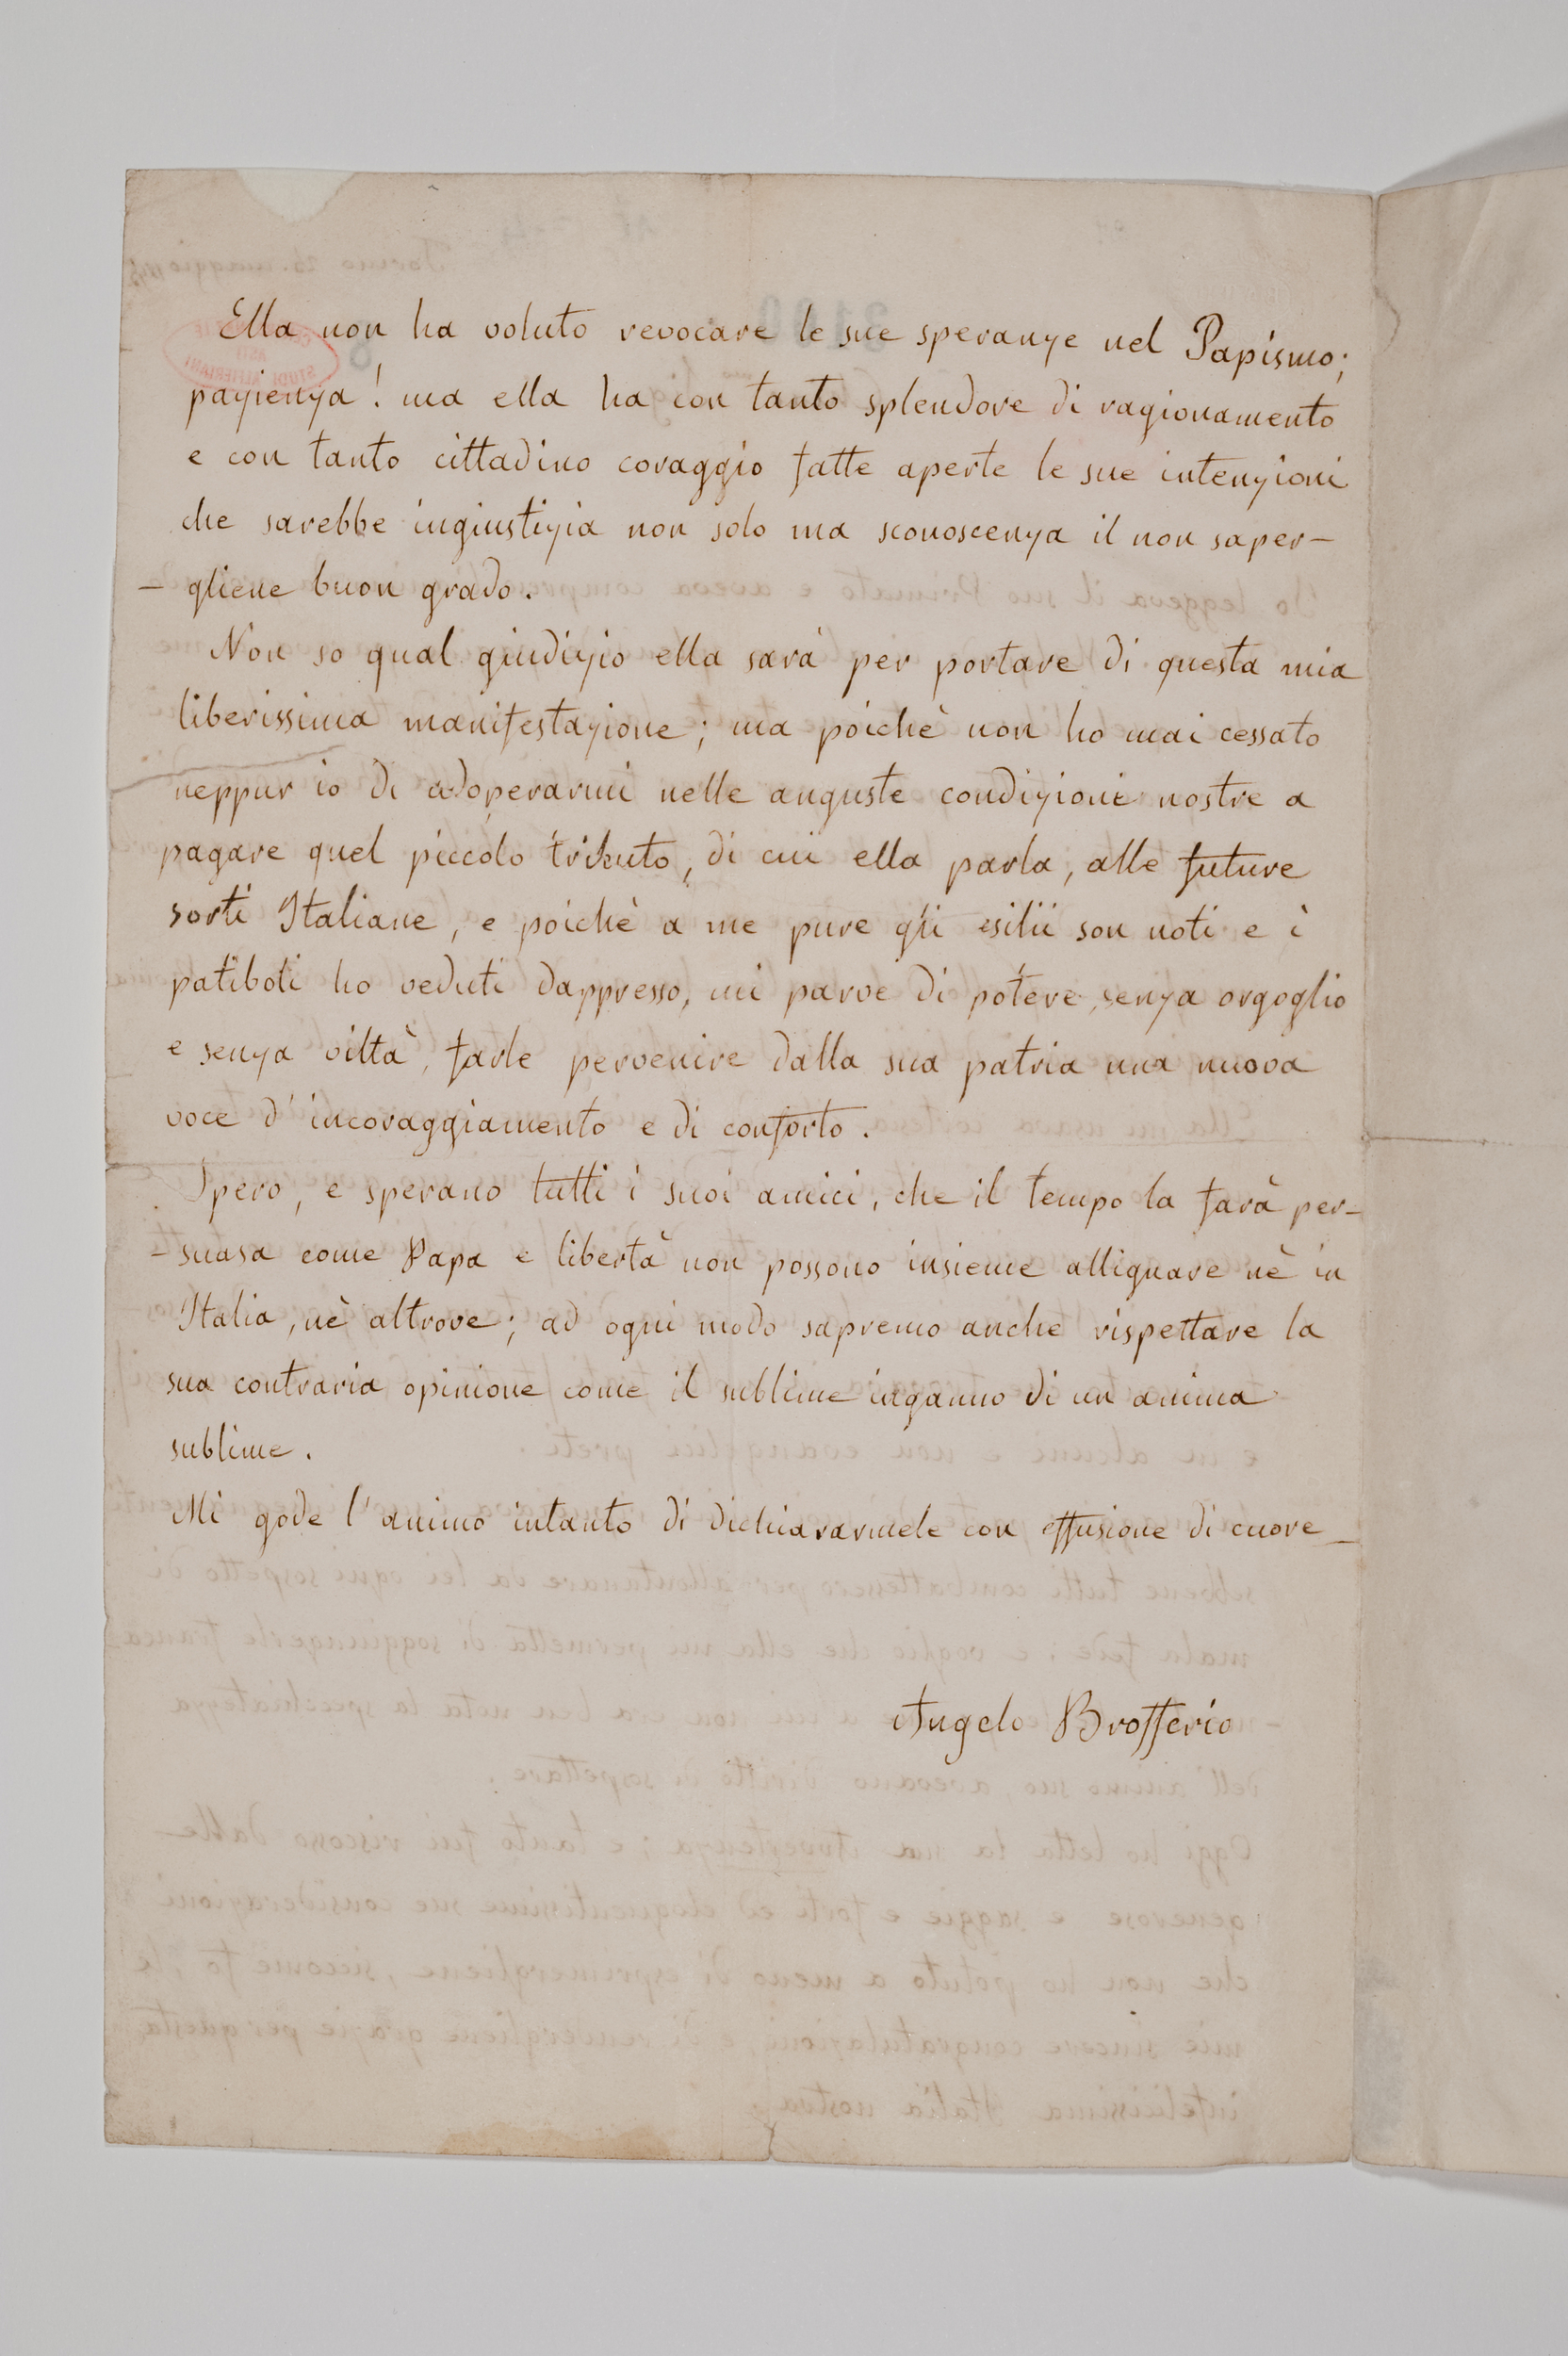 Ella non ha voluto revocare le sue speranze nel Papismo;
pazienza! ma ella ha con tanto splendore di ragionamento
e con tanto cittadino coraggio fatte aperte le sue intenzioni
che sarebbe ingiustizia non solo ma sconoscenza il non saper-
- gliene buon grado.
Non so qual giudizio ella sarà per portare di questa mia
liberissima manifestazione; ma poichè non ho mai cessato
neppur io di adoperarmi nelle anguste condizioni nostre a
pagare quel piccolo tributo, di cui ella parla, alle future
sorti Italiane, e poichè a me pure gli esilii son noti e i
patiboli ho veduti dappresso, mi parve di potere, senza orgoglio
e senza viltà, farle pervenire dalla sua patria una nuova
voce d'incoraggiamento e di conforto.
Spero, e sperano tutti i suoi amici, che il tempo la farà per-
- suasa come Papa e libertà non possono insieme allignare nè in
Italia, nè altrove; ad ogni modo sapremo anche rispettare la
sua contraria opinione come il sublime inganno di un anima
sublime.
Mi gode l'animo intanto di dichiararmele con effusione di cuore
Angelo Brofferio